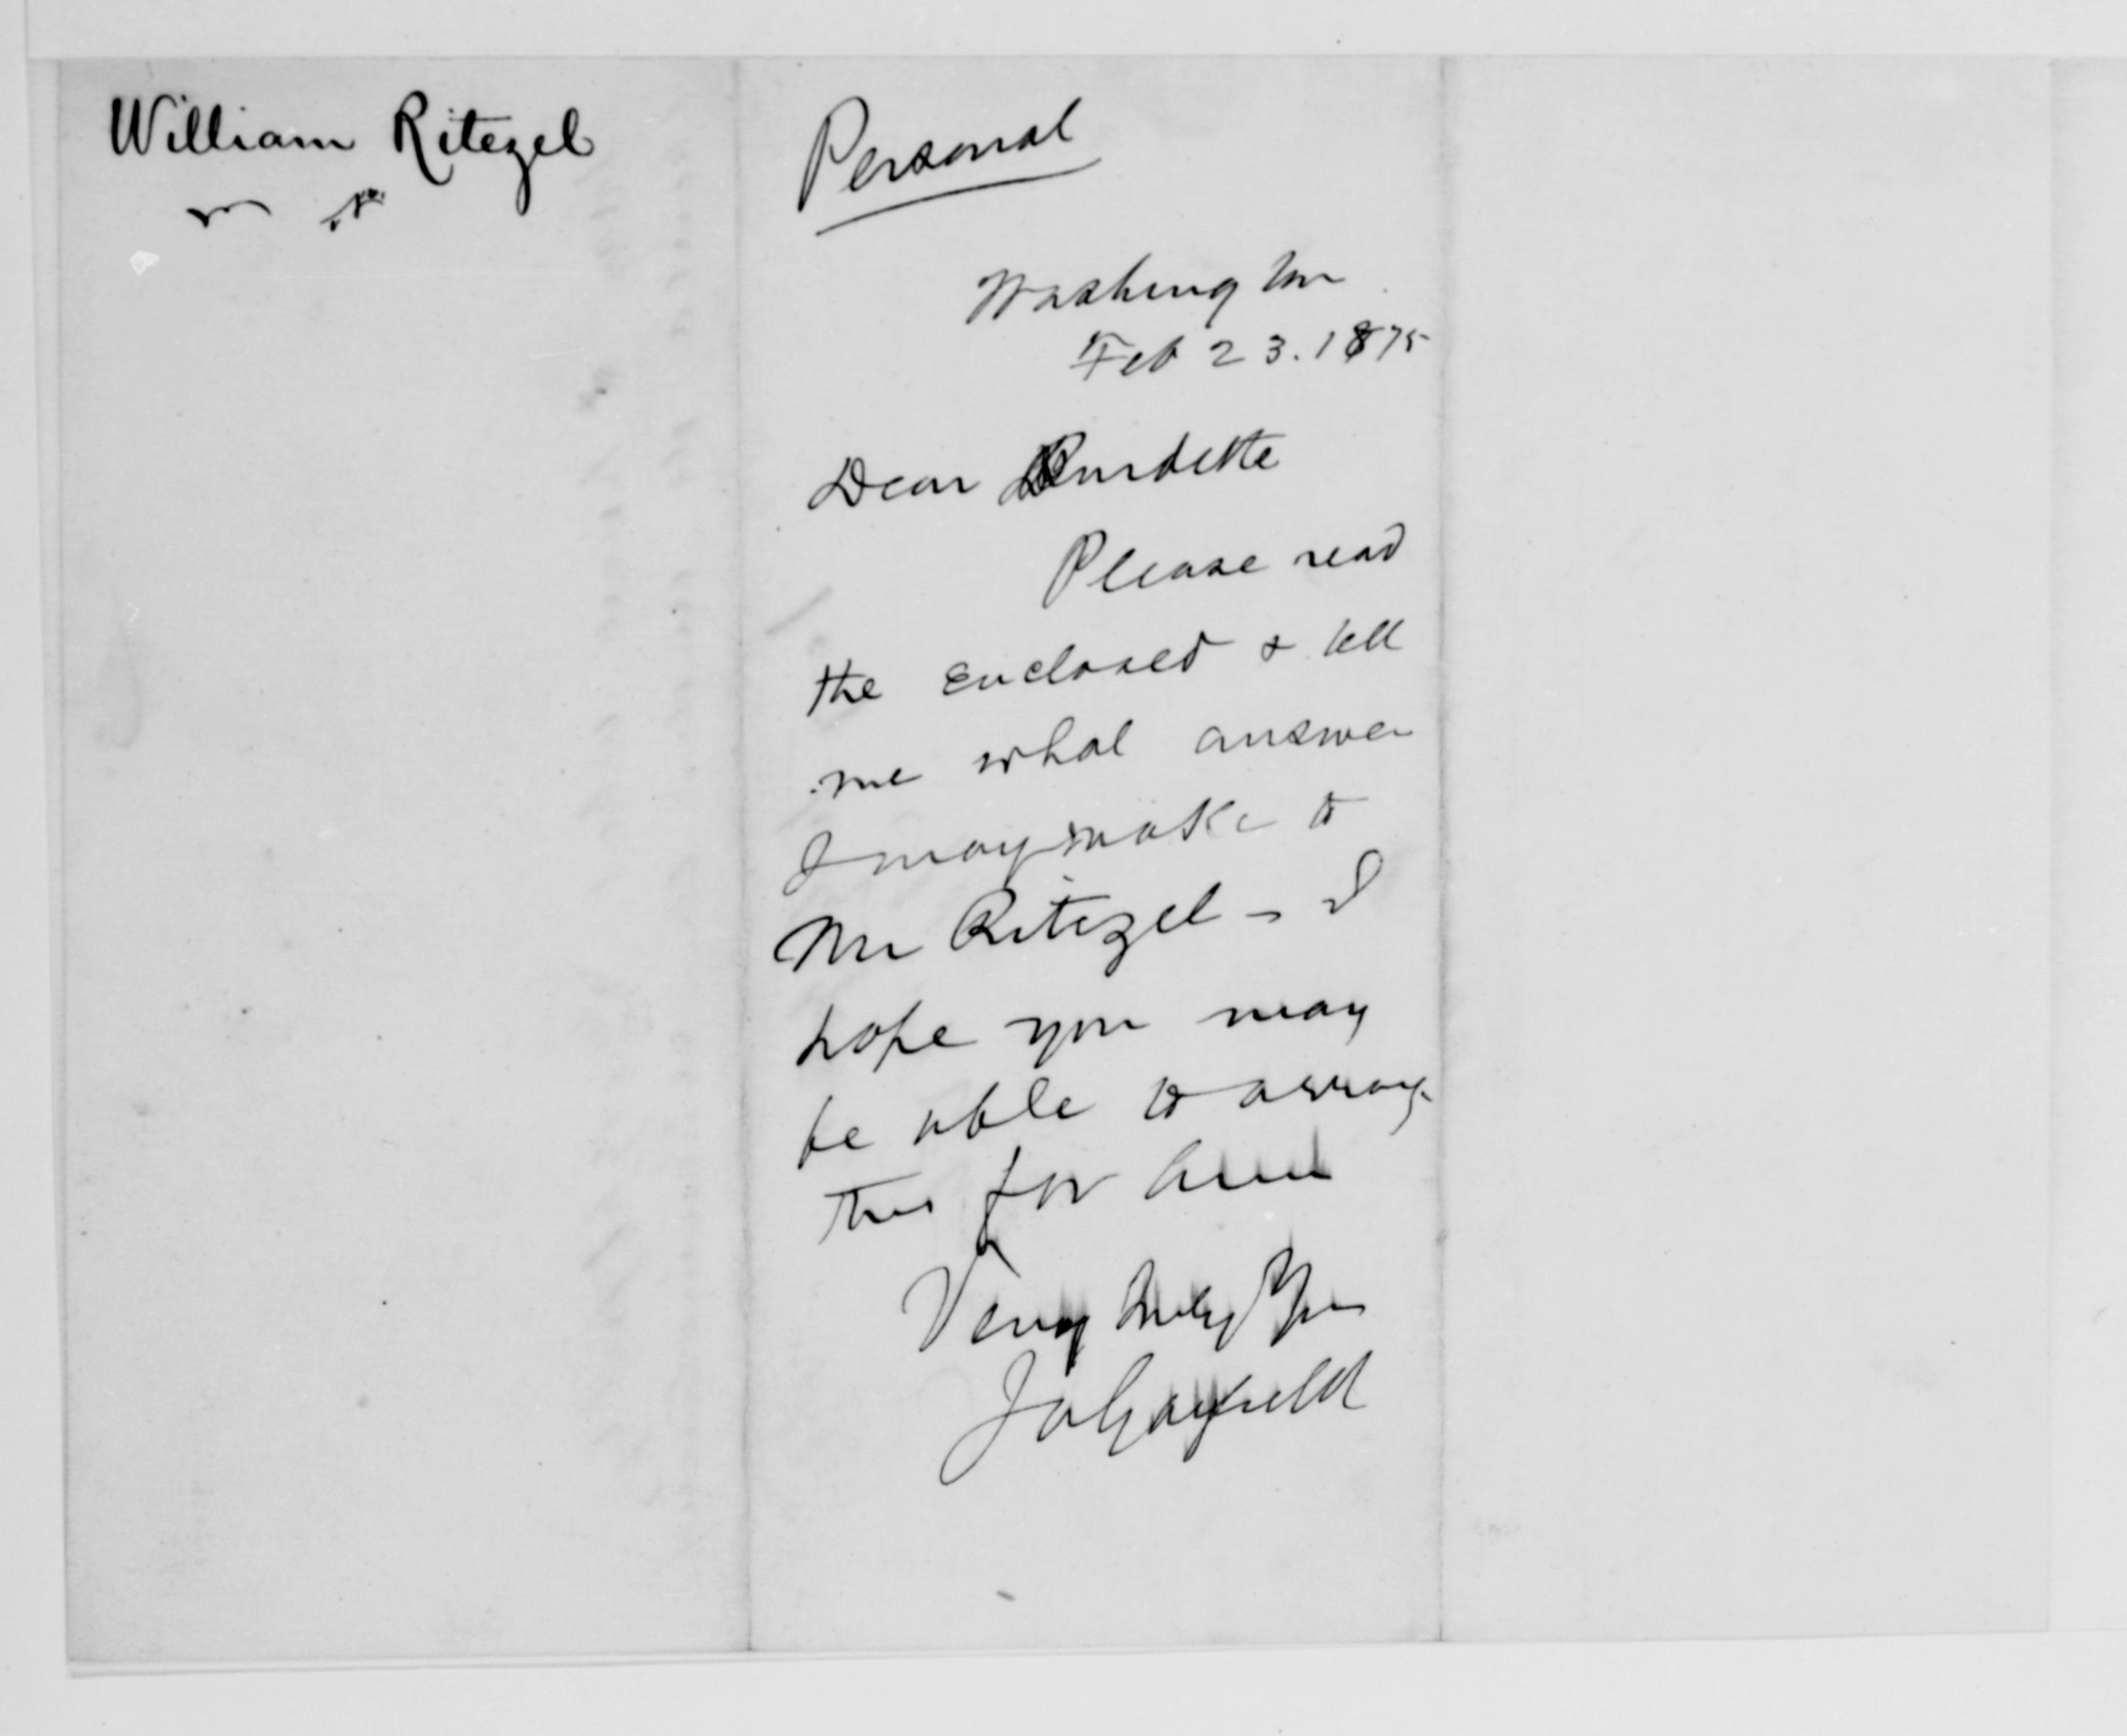 William Ritezel
Personal
Washington
Feb 23. 1875
Dear Burdette
Please read
the enclosed & tell
me what answer
I may make to
Mr Ritezel - I
hope you may
be able to arrange
this for him
Very truly Yours
J A Garfield